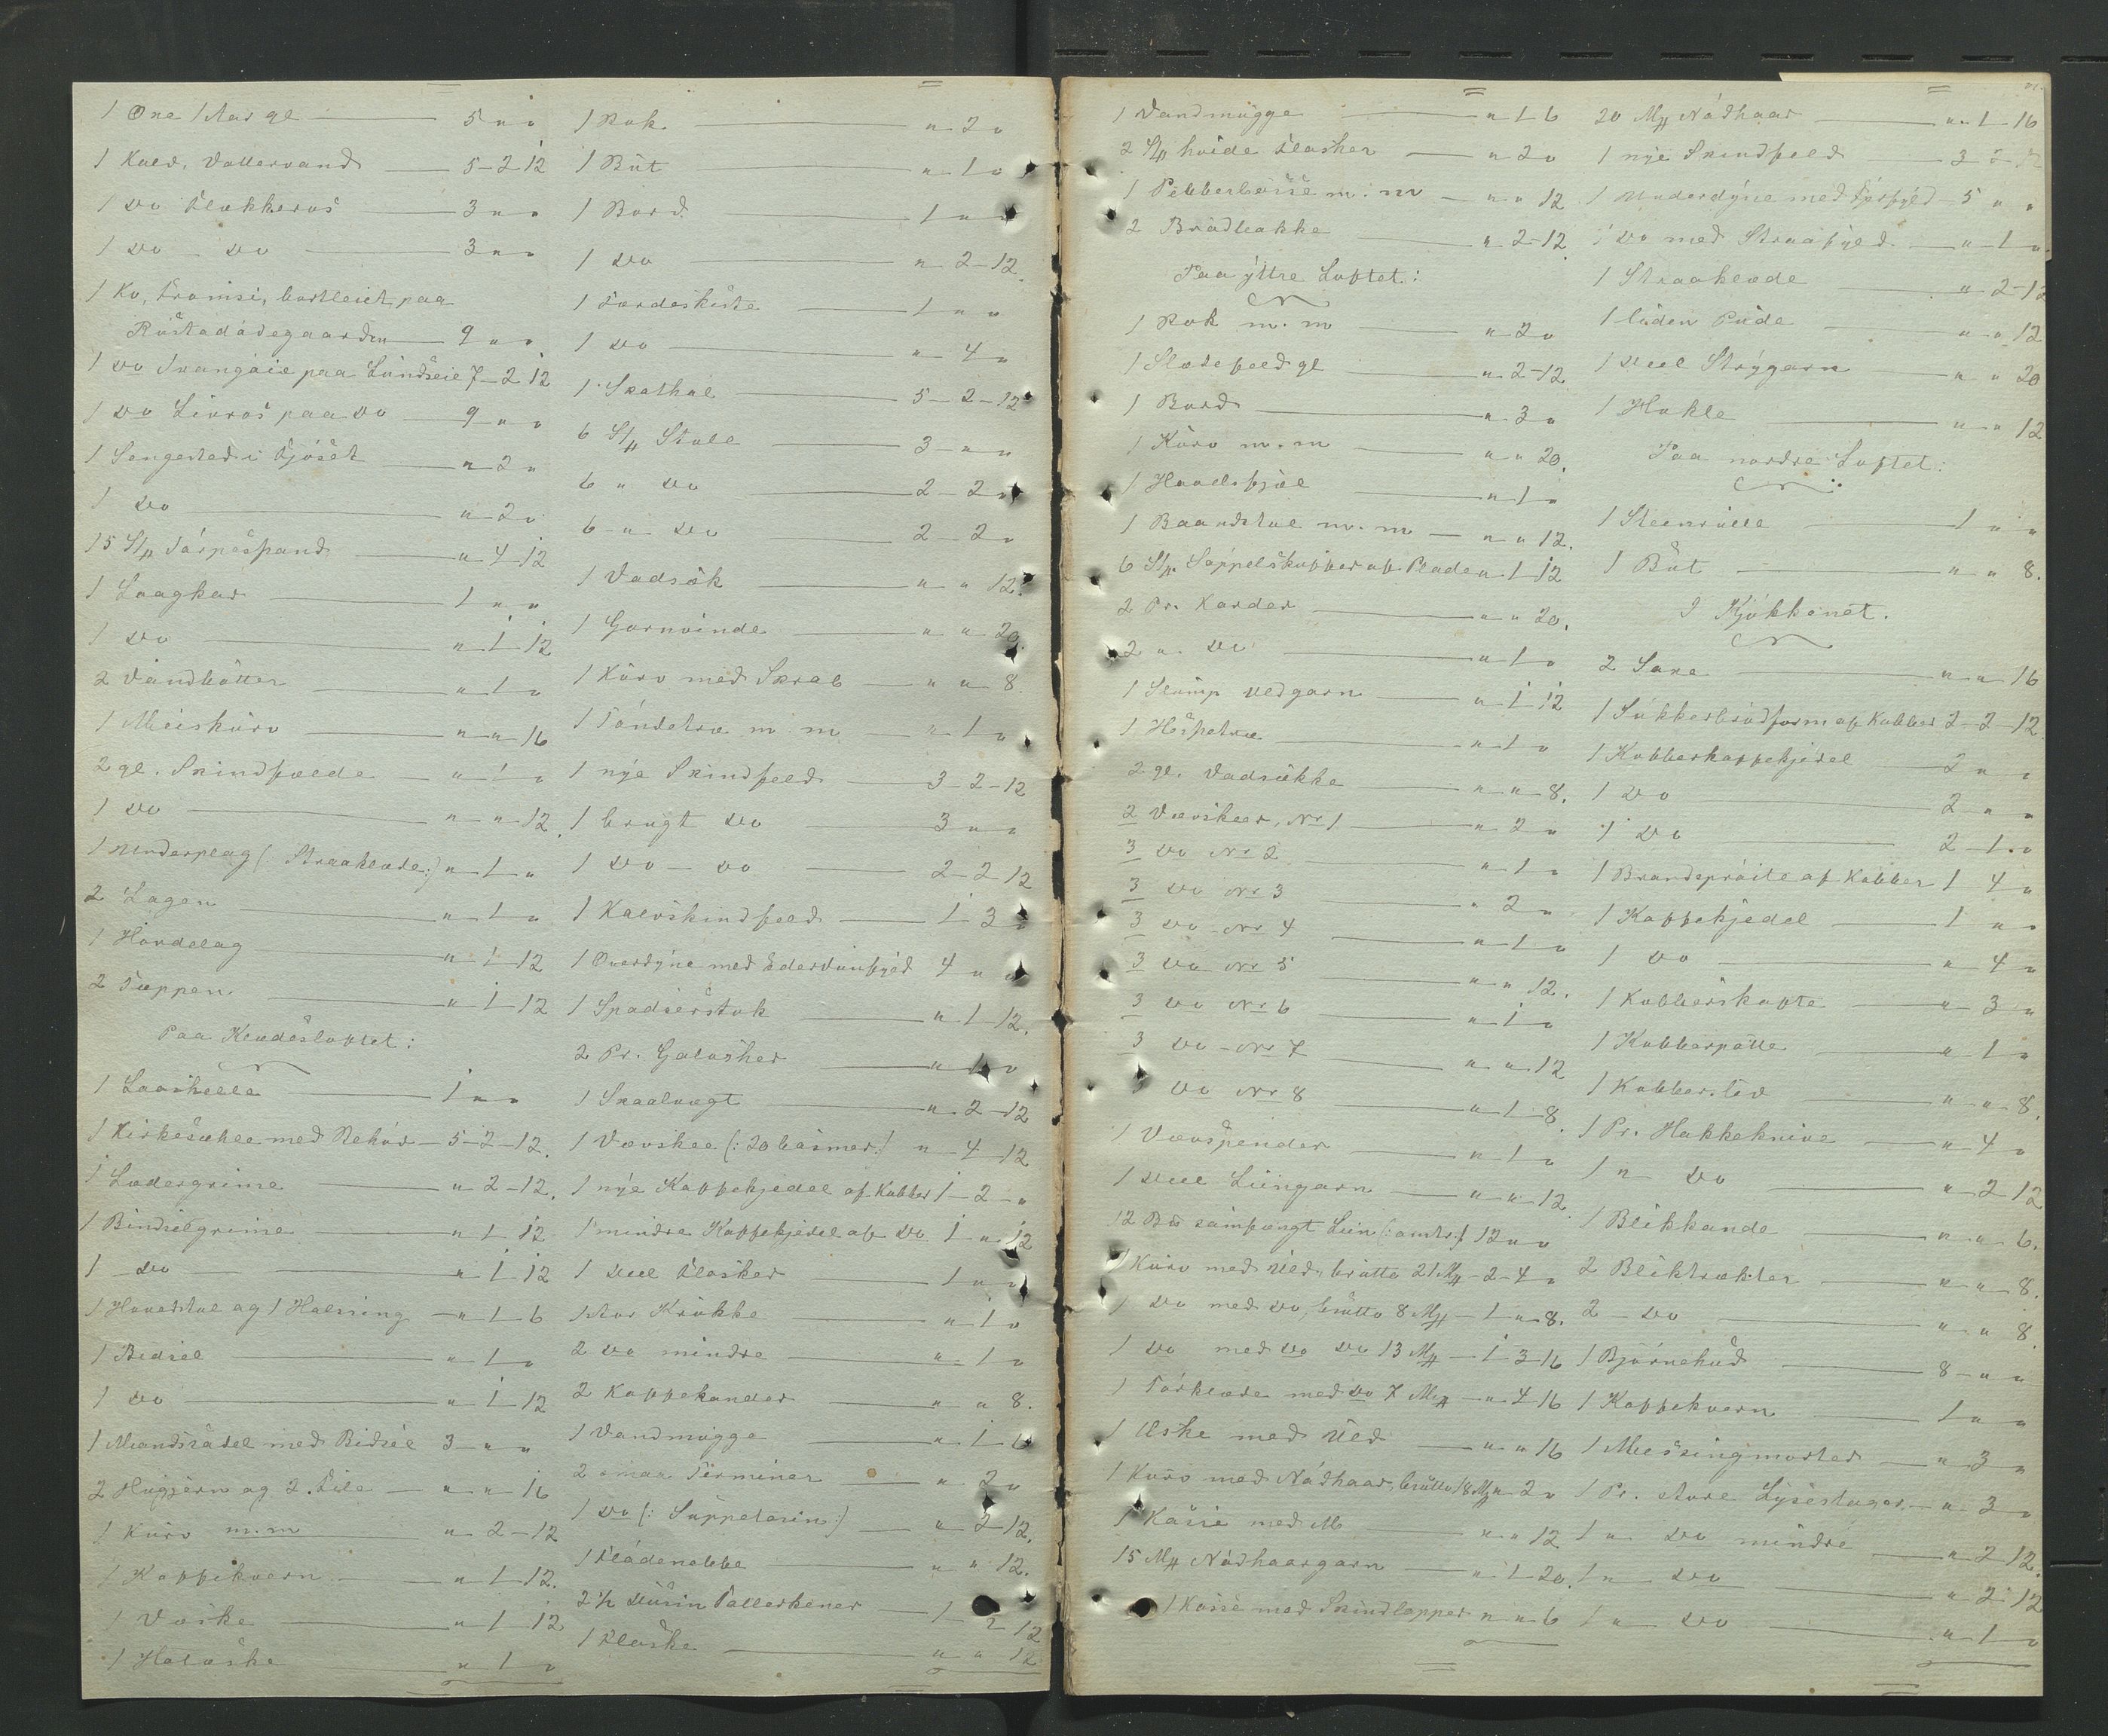 1 Oxe 1 Aar gl — 5 " "
1 Kalv, Vattervand — 5-2-12
1 do Flakkeros — 3 " "
1 do do — 3 " "
1 Ko, Fromsi, bortleiet paa
Røstadødegaarden — 9 " "
1 do Svangøie paa Lundseie 7-2-12
1 do Livros paa do — 9 " "
1 Sengested i Fjøset — " 2 "
1 do — " 2 "
15 S/tt — " 4-12
1 Laagkar — 1 " "
1 do — " 1-12
2 Vandbøtter — " 1 "
1 Meiskurv — " " 16
2 gl. Skindfælde — " 1 "
1 do — " " 12
1 Underplag (: Straaklæde:) " 1 "
2 Lagen — " 1 "
1 Hørdelag — " 1-12
2 Tæppen — " 1-12
Paa Klædesloftet:
1 Laaskelle — 1 " "
1 Kirkesæhle med Behør — 5-2-12.
1 Lædergrime — " 2-12.
1 Bindselgrime — " 1-12
1 do — " 1-12
1 Hovedstol og 1 Halsring — " 1-6
1 Bidsel — " 1 "
1 do — " 1-12
1 Mandssadel med Bidsel 3 " "
2 Hugjern og 2 File — " " 16
1 Kurv m.m — " 2-12
1 Kaffekværn — " 1-12.
1 Væske — " 1-12
1 Haløske — " 1 "
1 Rok — " 2 "
1 Bøt — " 1 "
1 Bord — 1 " "
1 do — " 2-12.
1 Færdeskiste — 1 " "
1 do — " 4 "
1 Skathol — 5-2-12
6 S/tt Stole — 3 " "
6 " do — 2-2 "
6 " do — 2-2 "
1 Vadsæk — " " 12.
1 Garnvinde — " " 20
1 Kurv med Skrab — " " 8
1 Tøndetræ m: m — " 1 "
1 nye Skindfeld — 3-2-12
1 brugt do — 3 " "
1 do do — 2-2-12
1 Kalvskindfeld — 1-3 "
1 Overdyne med Ederdunfyld 4 " "
1 Spadserstok — " 1-12.
2 Pr. Galosher — " 1 "
1 Skaalvægt — " 2-12
1 Vævskee (: 20 basmer:) " 4-12
1 nye Kaffekjedel af Kobber 1-2 "
1 mindre Kaffekjedel af do 1 " 12
1 Deel Flasker — 1 " "
1 stor Krukke — " 1 "
2 do mindre — " 1 "
2 Kaffekander — " " 8.
1 Vandmugge — " 1-6
2 smaa Terminer — " 2 "
1 do (: Suppeterin:) — " 2-12.
1 Flødenobbe — " " 12.
2 1/2 Dusin Tallerkener — 1-2-12
1 Flaske — " " 12
1 Vandmugge — " 1-6
2 S/tt hvide Flasker — " 2 "
1 Pebberbøsse m: m — " " 12
2 Brødbakke — " 2-12.
Paa yttre Loftet:
1 Rok m.m — " 2 "
1 Slædefeld gl — " 2-12
1 Bord — " 3 "
1 Kurv m.m — " " 20.
1 Hovelsfjæl — " 1 "
1 Baandstol m.m — " " 12.
6 S/tt af Blade " 1-12
2 Pr. Karder — " " 20.
2 " do — " 1 "
1 Slump Uldgarn — " 1-12
1 Hespetræ — " 1 "
2 gl. Vadsække — " " 8.
2 Vævskeer, No 1 — " 2 "
3 do No 2 — " 1 "
3 do No 3 — " 2 "
3 do No 4 — " 1 "
3 do No 5 — " " 12.
3 do No 6 — " 1 "
3 do No 7 — " " 12
3 do No 8 — " 1-8.
1 Vævspender — " 1 "
1 Deel Liingarn — " " 12.
12 Liin 12 " "
1 Kurv med Uld, brutto 21 M/tt — 2-4 "
1 do med do, brutto 8 M/tt — 1 " 8.
1 do med do do 13 M/tt — 1-3-16
1 Tørklæde med do 7 M/tt — " 4-16
1 Æske med Uld — " " 16
1 Kurv med Nødhaar, brutto 18 M/tt " 2 "
1 Kasse med — " " 12
15 M/tt Nødhaargarn — " 1-20.
1 Kasse med Skindlapper " " 6
20 M/tt Nødhaar — " 1-16
1 nye Skindfeld — 3-2
1 Underdyne med Fjærfyld 5 " "
1 do med Straafyld — " 1 "
1 Straaklæde — " 2-12
1 liden Pude — " " 12
1 Deel Strygarn — " " 20
1 Hekle — " " 12
Paa nordre Loftet:
1 Steenrulle — 1 " "
1 Bøt — " " 8.
I Kjøkkenet.
2 Saxe — " " 16
1 Sukkerbrødform af Kobber 2-2-12
1 Kobberkaffekjedel — 2 " "
1 do — 2 " "
1 do — 2-1 "
1 Brandsprøite af Kobber 1 4 "
1 Kaffekjedel — 1 " "
1 do — " 4 "
1 Kobberskafte — " 3 "
1 Kobberpotte — " 1 "
1 Kobberlod — " " 8.
1 Pr. Hakkeknive — " 4 "
1 " do — " 2-12
1 Blikkande — " " 6.
2 Bliktrakter — " " 8.
2 do — " " 8.
1 Bjørnehud — 8 " "
1 Kaffekværn — 1 " "
1 Messingmorter — " 3 "
1 Pr. store Lysestager — " 3 "
1 " do mindre — " 2-12.
1 " do — " 2-12
1 " do — " 1 "